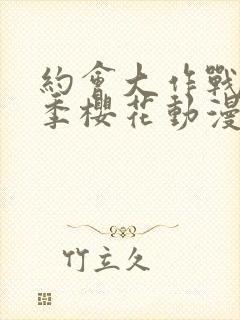 約會大作戰
季櫻花動漫
竹立久